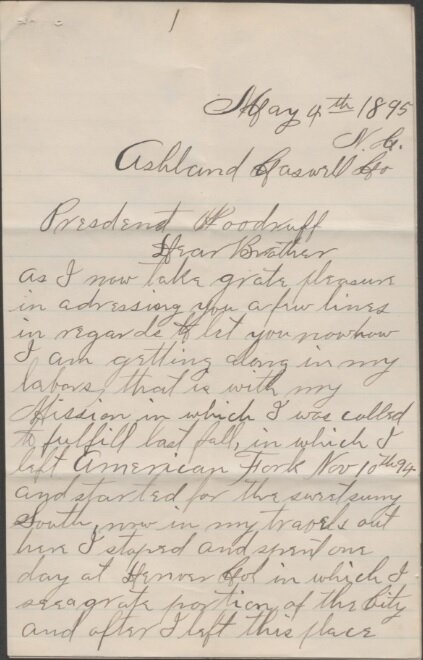 1
May 4th 1895
N. C.
Ashland Caswell Co
Presdent Woodruff
Dear Brother
as I now take grate pleasure
in adressing you a few lines
in regards to let you now how
I am getting along in my
labors, that is with my
Mission, in which I was called
to fulfill last fall, in which I
left American Fork Nov 10th 94
and started for the sweet suny
South, now in my travels out
here I stoped and spent one
day at Denver Col in which I
see a grate portion of the City
and after I left this place